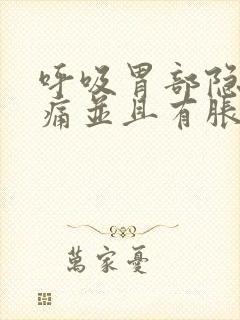 呼吸胃部隐
痛並且有脹
萬家憂